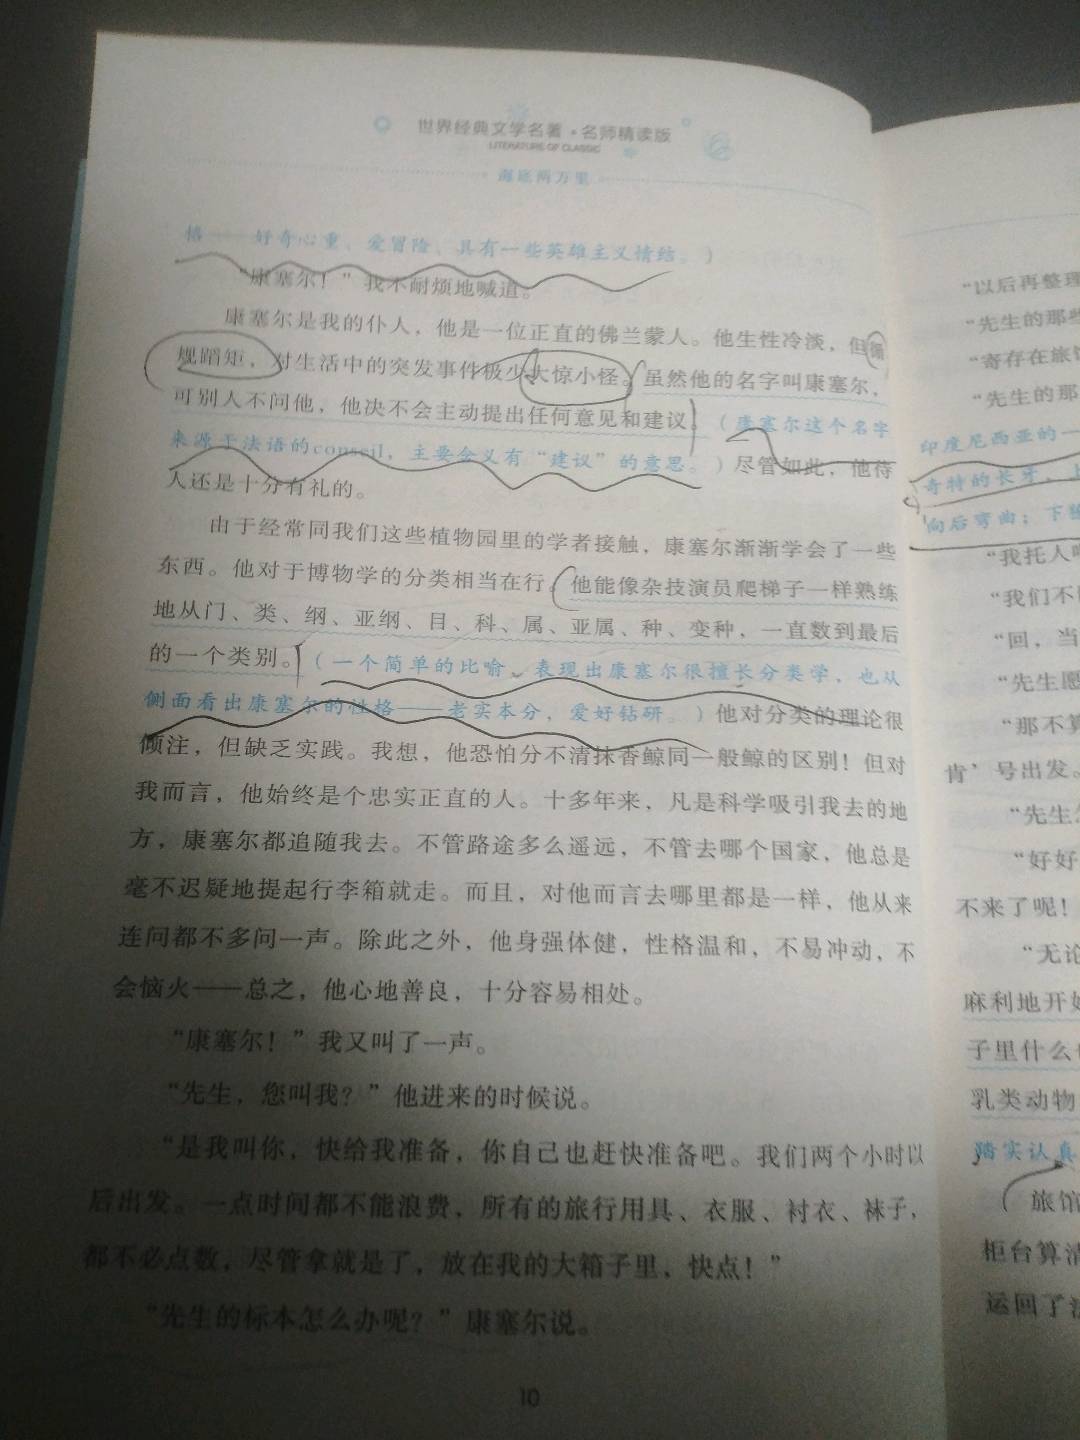 世界经典文学名著·名师精读版
LITERATURE OF CLASSIC
海底两万里
格——好奇心重、爱冒险、具有一些英雄主义情结。）
“康塞尔！”我不耐烦地喊道。
康塞尔是我的仆人，他是一位正直的佛兰蒙人。他生性冷淡，但循
规蹈矩，对生活中的突发事件极少大惊小怪。虽然他的名字叫康塞尔，
可别人不问他，他决不会主动提出任何意见和建议。（康塞尔这个名字
来源于法语的conseil，主要含义有“建议”的意思。）尽管如此，他待
人还是十分有礼的。
由于经常同我们这些植物园里的学者接触，康塞尔渐渐学会了一些
东西。他对于博物学的分类相当在行。他能像杂技演员爬梯子一样熟练
地从门、类、纲、亚纲、目、科、属、亚属、种、变种，一直数到最后
的一个类别。（一个简单的比喻，表现出康塞尔很擅长分类学，也从
侧面看出康塞尔的性格——老实本分，爱好钻研。）他对分类的理论很
倾注，但缺乏实践。我想，他恐怕分不清抹香鲸同一般鲸的区别！但对
我而言，他始终是个忠实正直的人。十多年来，凡是科学吸引我去的地
方，康塞尔都追随我去。不管路途多么遥远，不管去哪个国家，他总是
毫不迟疑地提起行李箱就走。而且，对他而言去哪里都是一样，他从来
连问都不多问一声。除此之外，他身强体健，性格温和，不易冲动，不
会恼火——总之，他心地善良，十分容易相处。
“康塞尔！”我又叫了一声。
“先生，您叫我？”他进来的时候说。
“是我叫你，快给我准备，你自己也赶快准备吧。我们两个小时以
后出发。一点时间都不能浪费，所有的旅行用具、衣服、衬衣、袜子，
都不必点数，尽管拿就是了，放在我的大箱子里，快点！”
“先生的标本怎么办呢？”康塞尔说。
10
“以后再整理
“先生的那些
“寄存在旅馆
“先生的那
印度尼西亚的一
奇特的长牙，上
向后弯曲；下
“我托人
“我们不
“回，当
“先生愿
“那不算
肯’号出发。
“先生怎
“好好
不来了呢！
“无论
麻利地开始
子里什么
乳类动物
踏实认真
旅馆
柜台算清
运回了